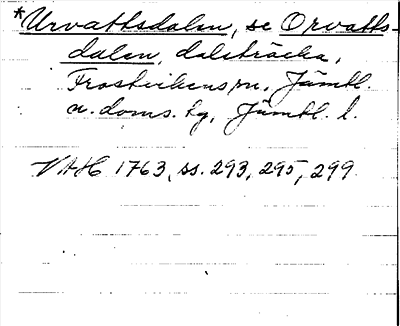 *Urvattsdalen, se Orvatts-
dalen, dalsträcka,
Frostvikens sn, Jämtl.
n. doms. tg, Jämtl. l.
VAH 1763, ss. 293, 295, 299.